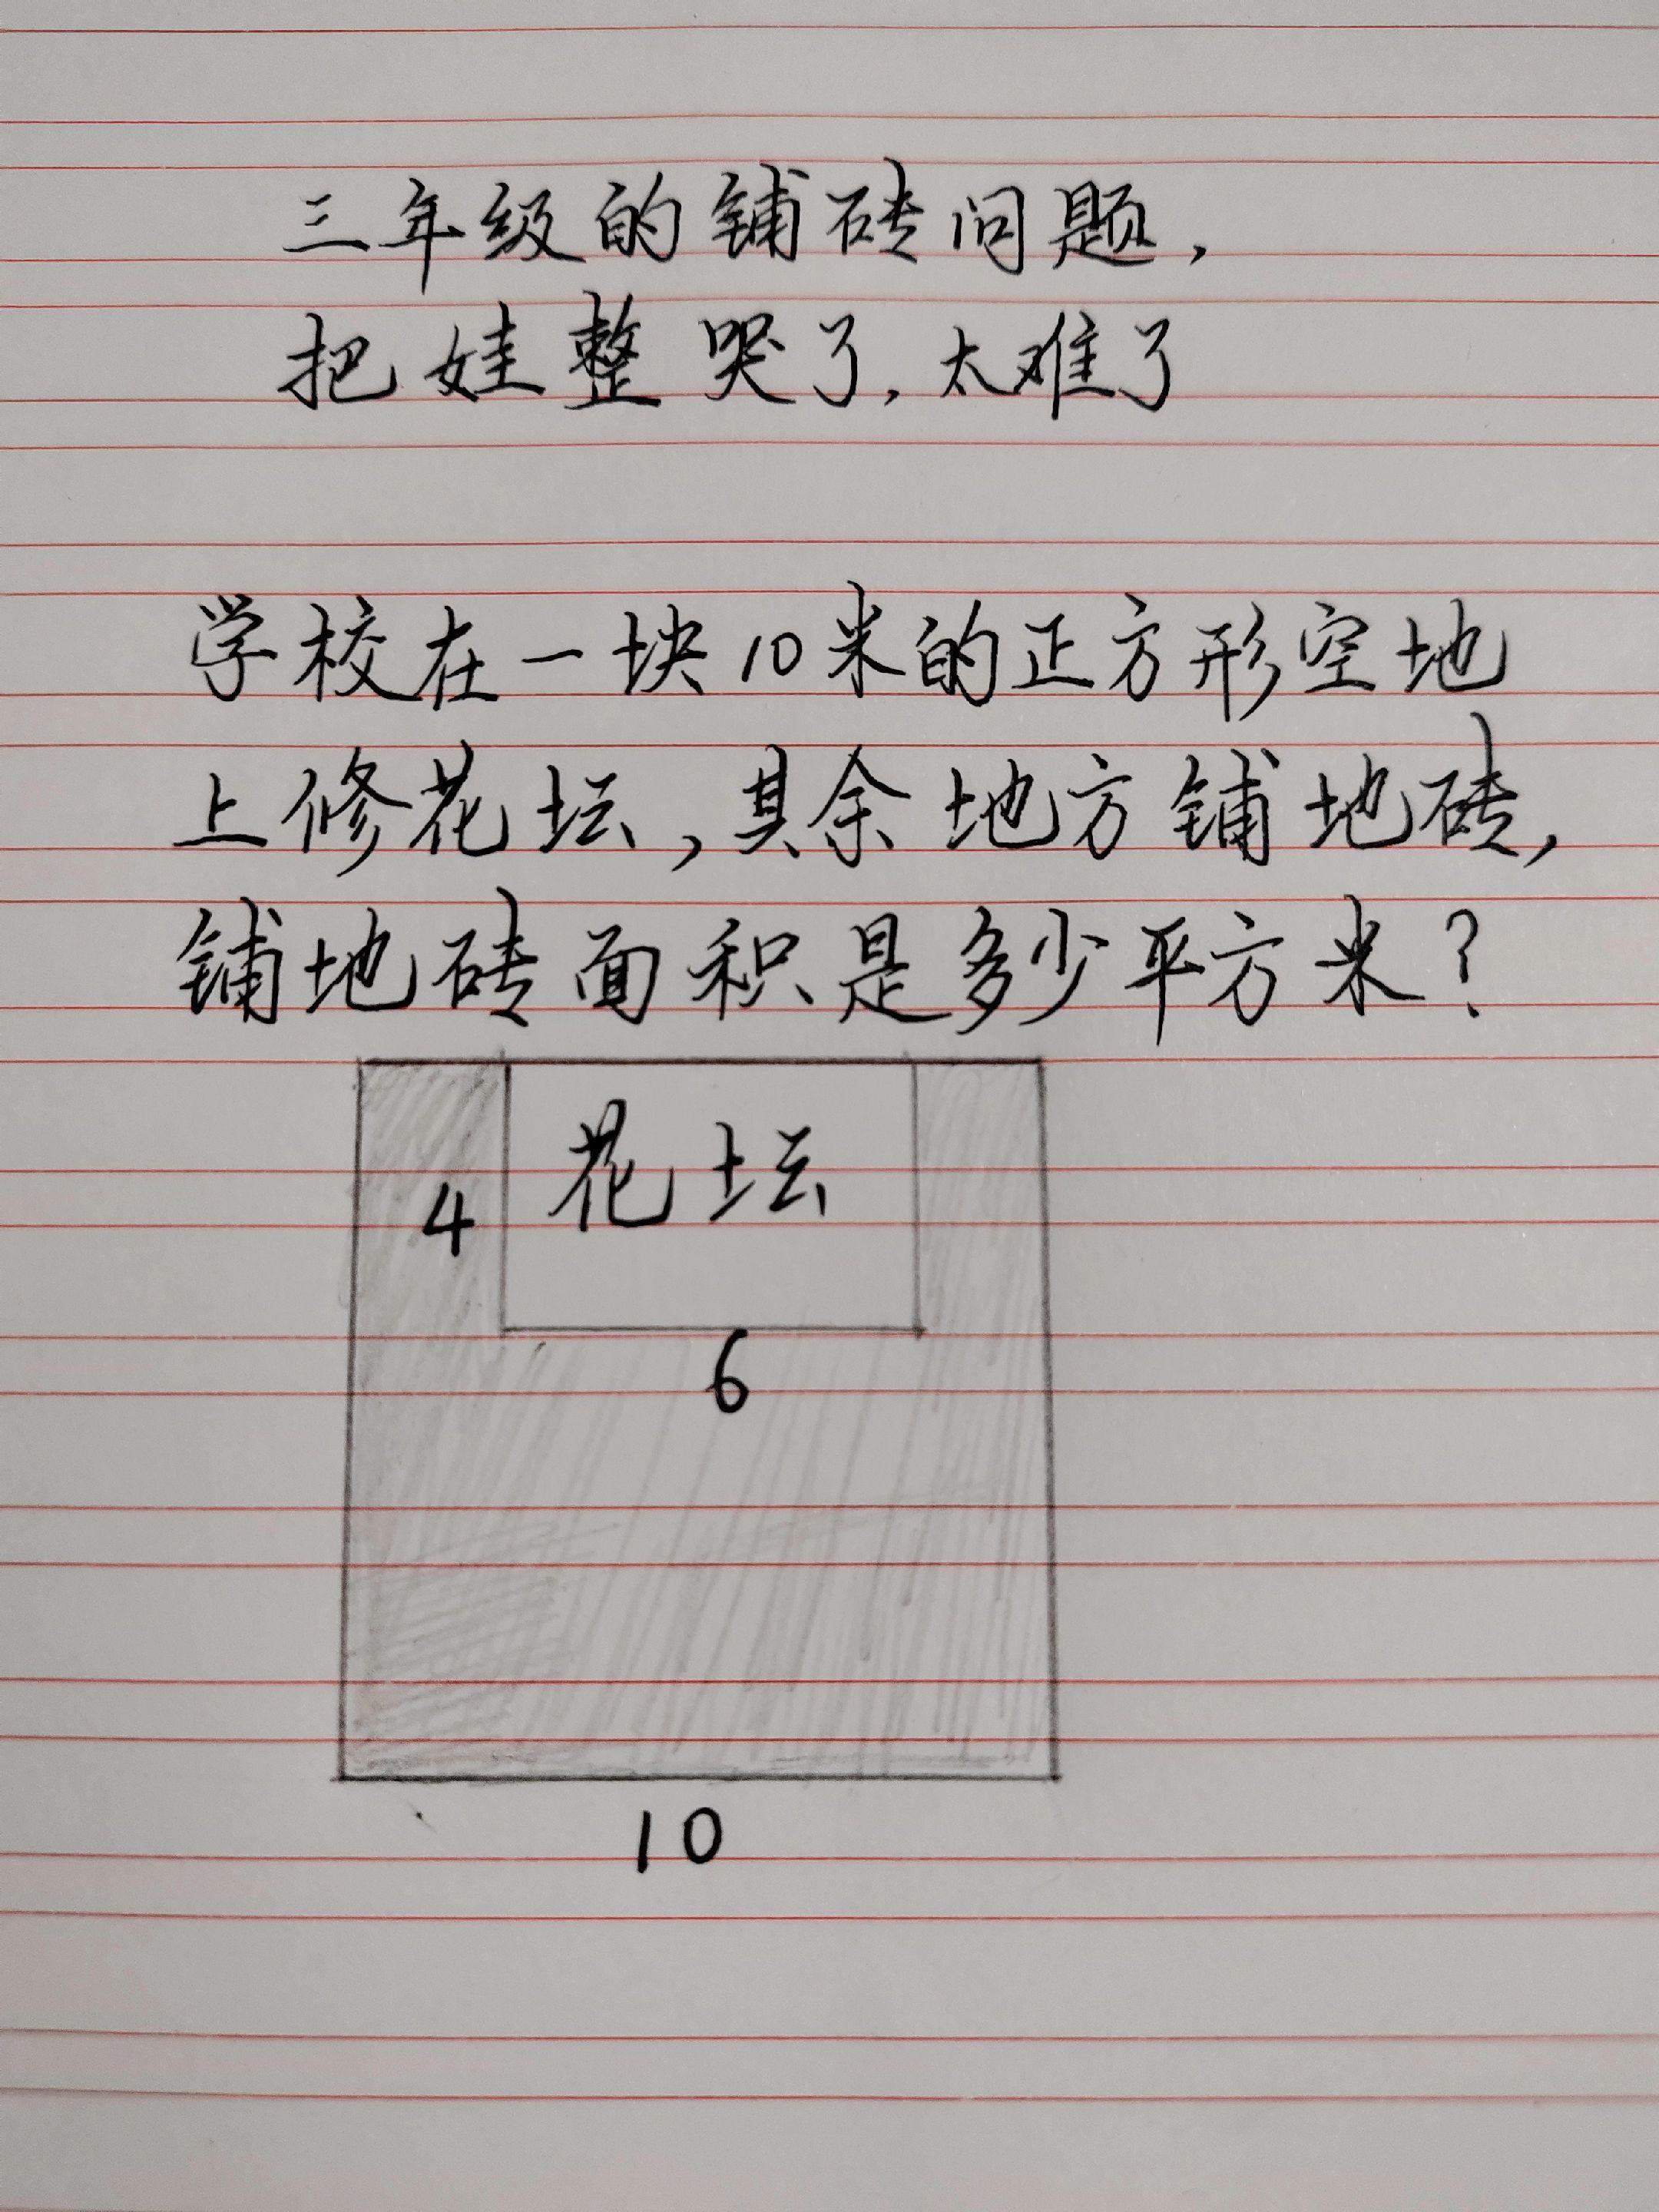 三年级的铺砖问题,
把娃整哭了,太难了
学校在一块10米的正方形空地
上修花坛,其余地方铺地砖,
铺地砖面积是多少平方米?
花坛
4
6
10